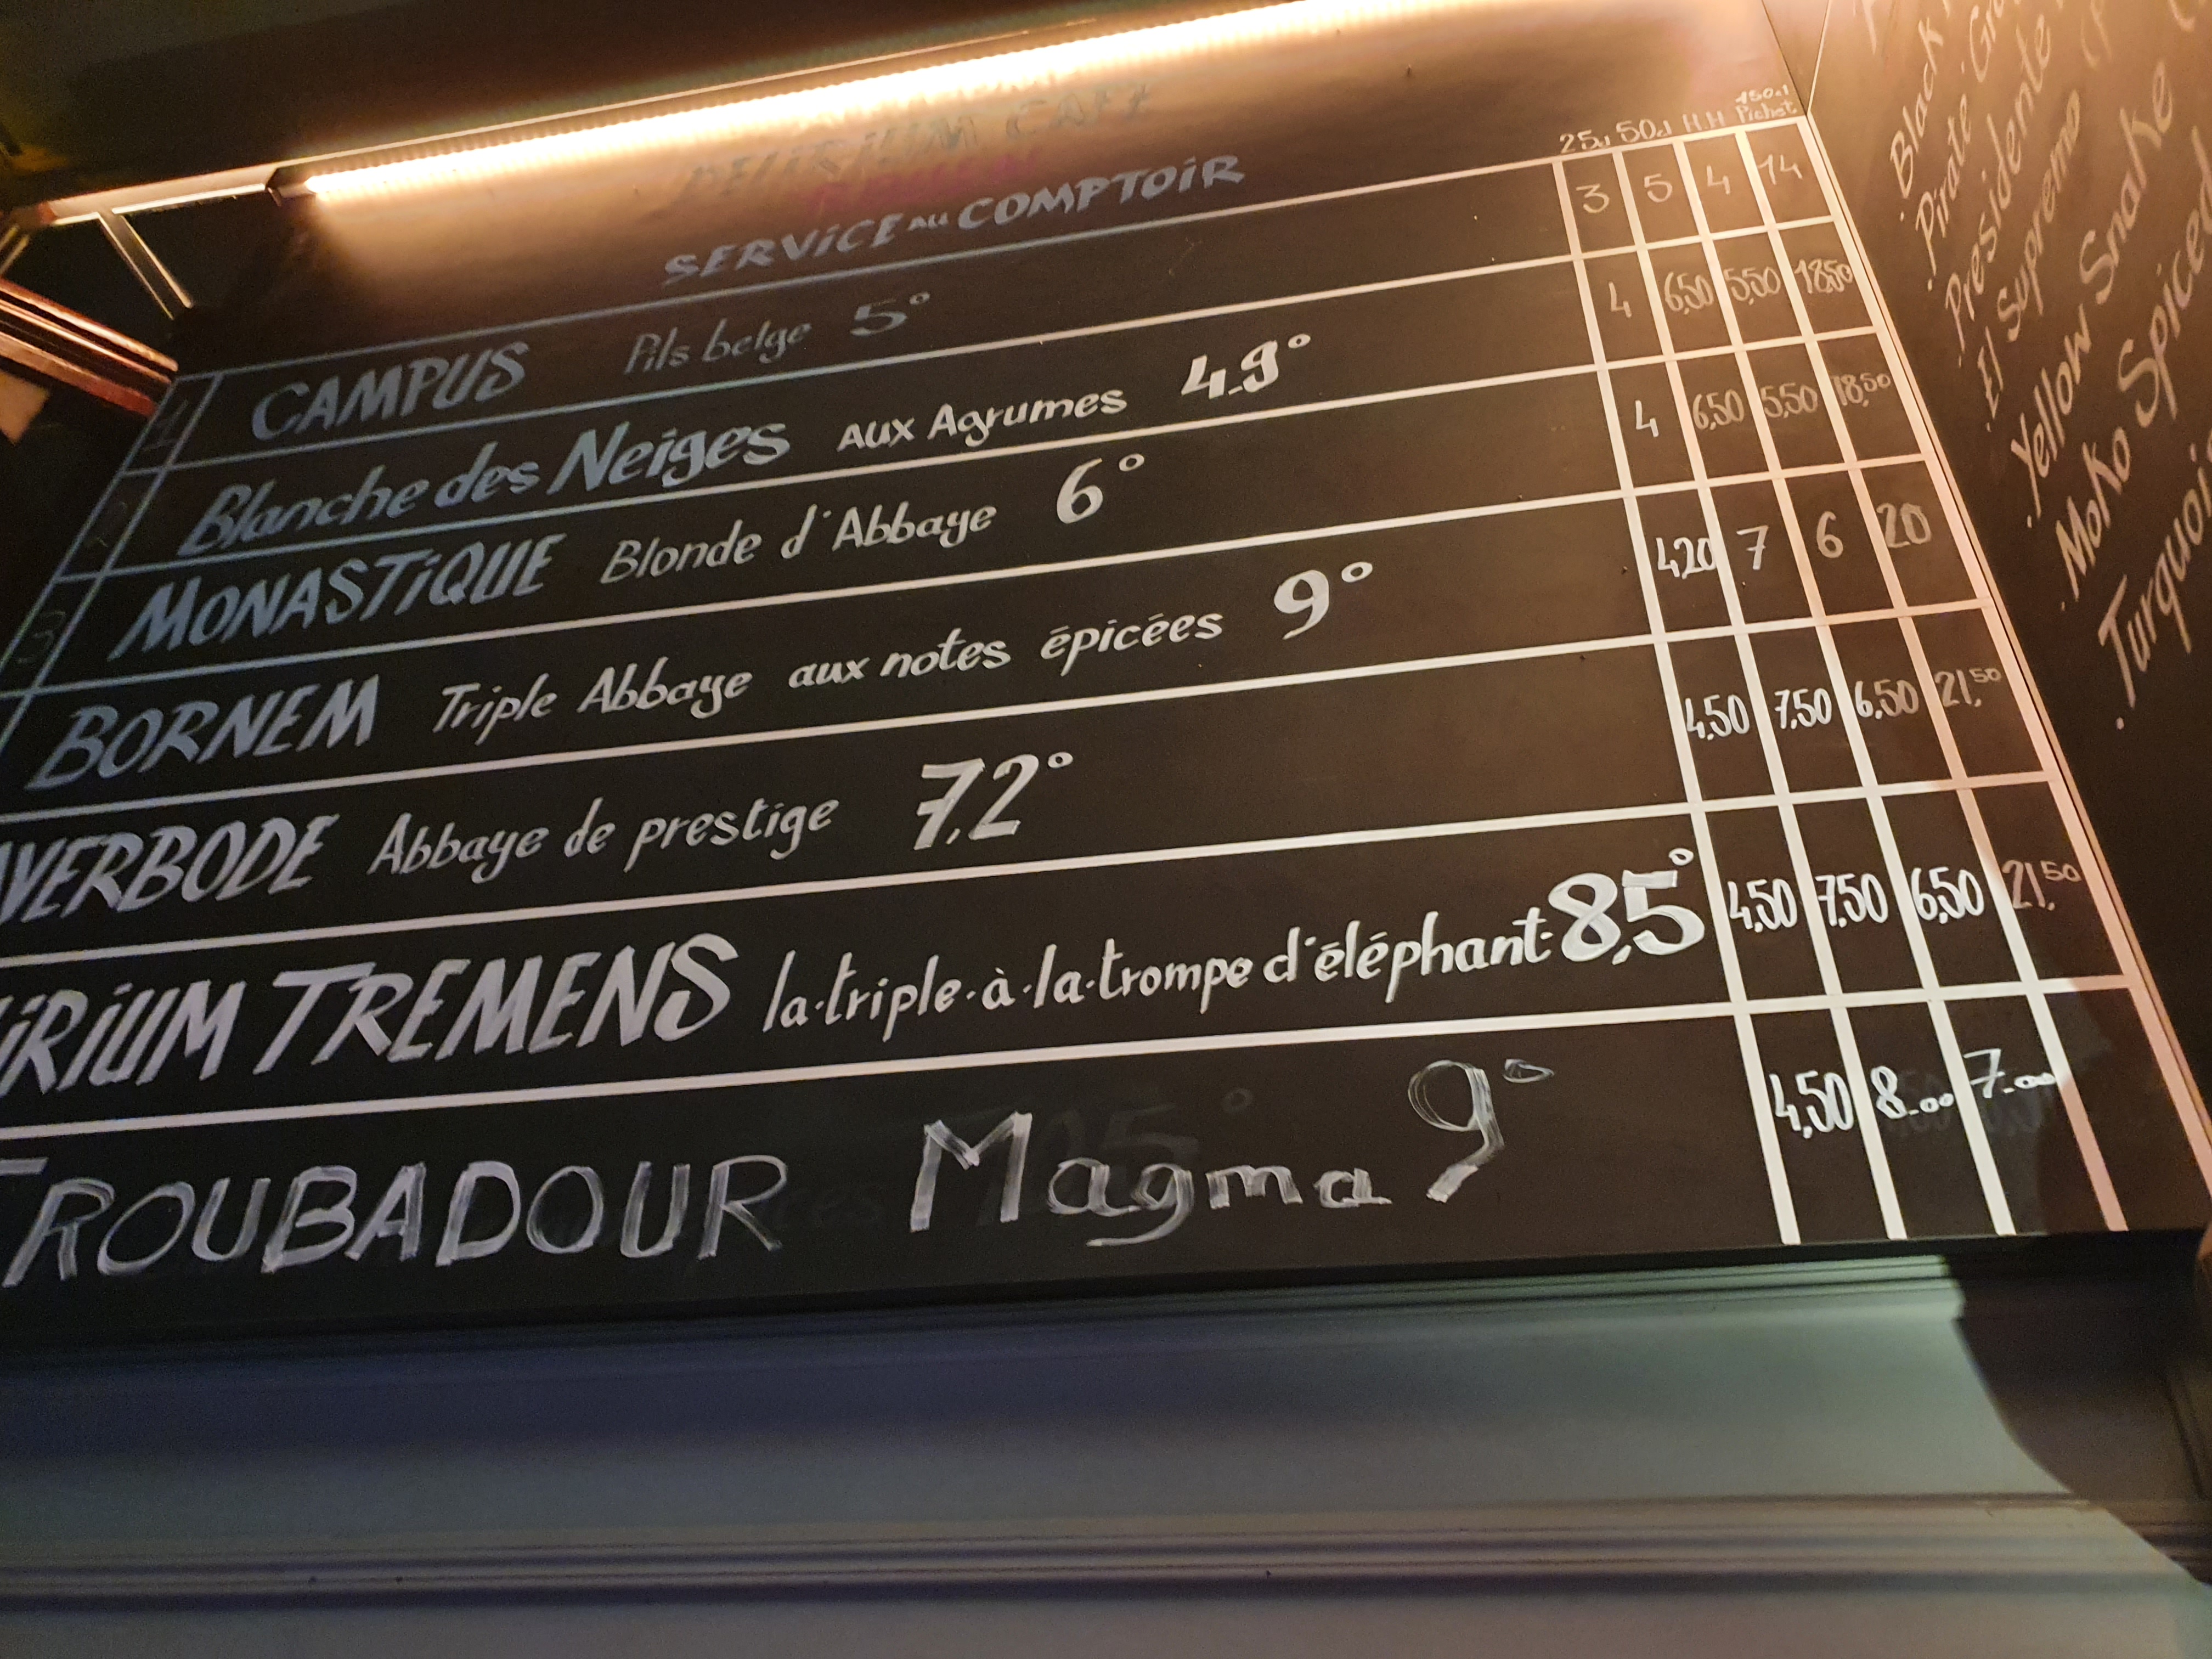 DELIRIUM CAFE
SERVICE AU COMPTOIR
25cl 50cl H.H 150cl Pichet
1 CAMPUS Pils belge 5° 3 5 4 14
2 Blanche des Neiges aux Agrumes 4.9° 4 6,50 5,50 18,50
3 MONASTiQUE Blonde d'Abbaye 6° 4 6,50 5,50 18,50
BORNEM Triple Abbaye aux notes épicées 9° 4,20 7 6 20
AVERBODE Abbaye de prestige 7,2° 4,50 7,50 6,50 21,50
iRiUM TREMENS la.triple.à.la.trompe d'éléphant. 8,5° 4,50 7,50 6,50 21,50
TROUBADOUR Magma 9° 4,50 8.00 7.00
. Black
. Pirate
. Presidente
. El Supremo
. Yellow Snake
. Moko Spiced